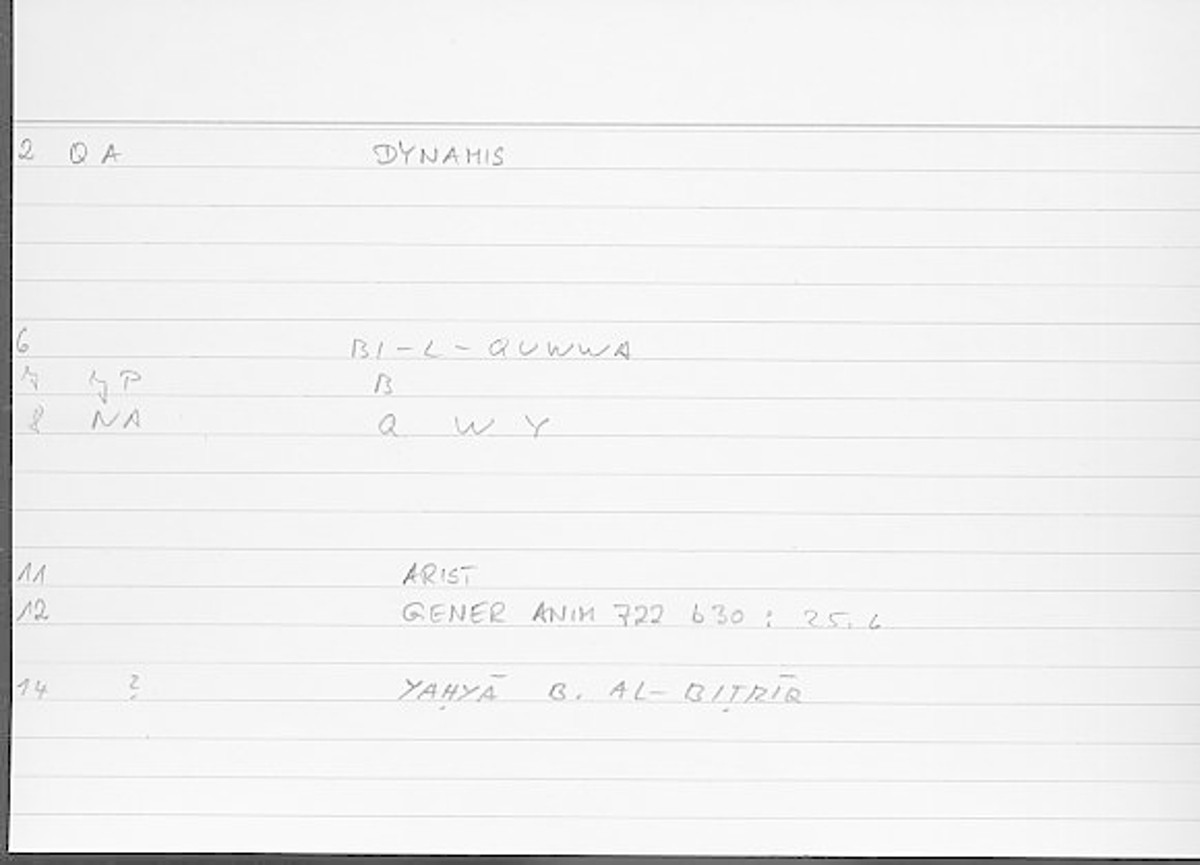 2 QA DYNAMIS
6 BI-L-QUWWA
7 JP B
8 NA Q W Y
11 ARIST
12 GENER ANIM 722 b30 : 25.6
14 ? YAḤYĀ B. AL-BIṬRĪQ